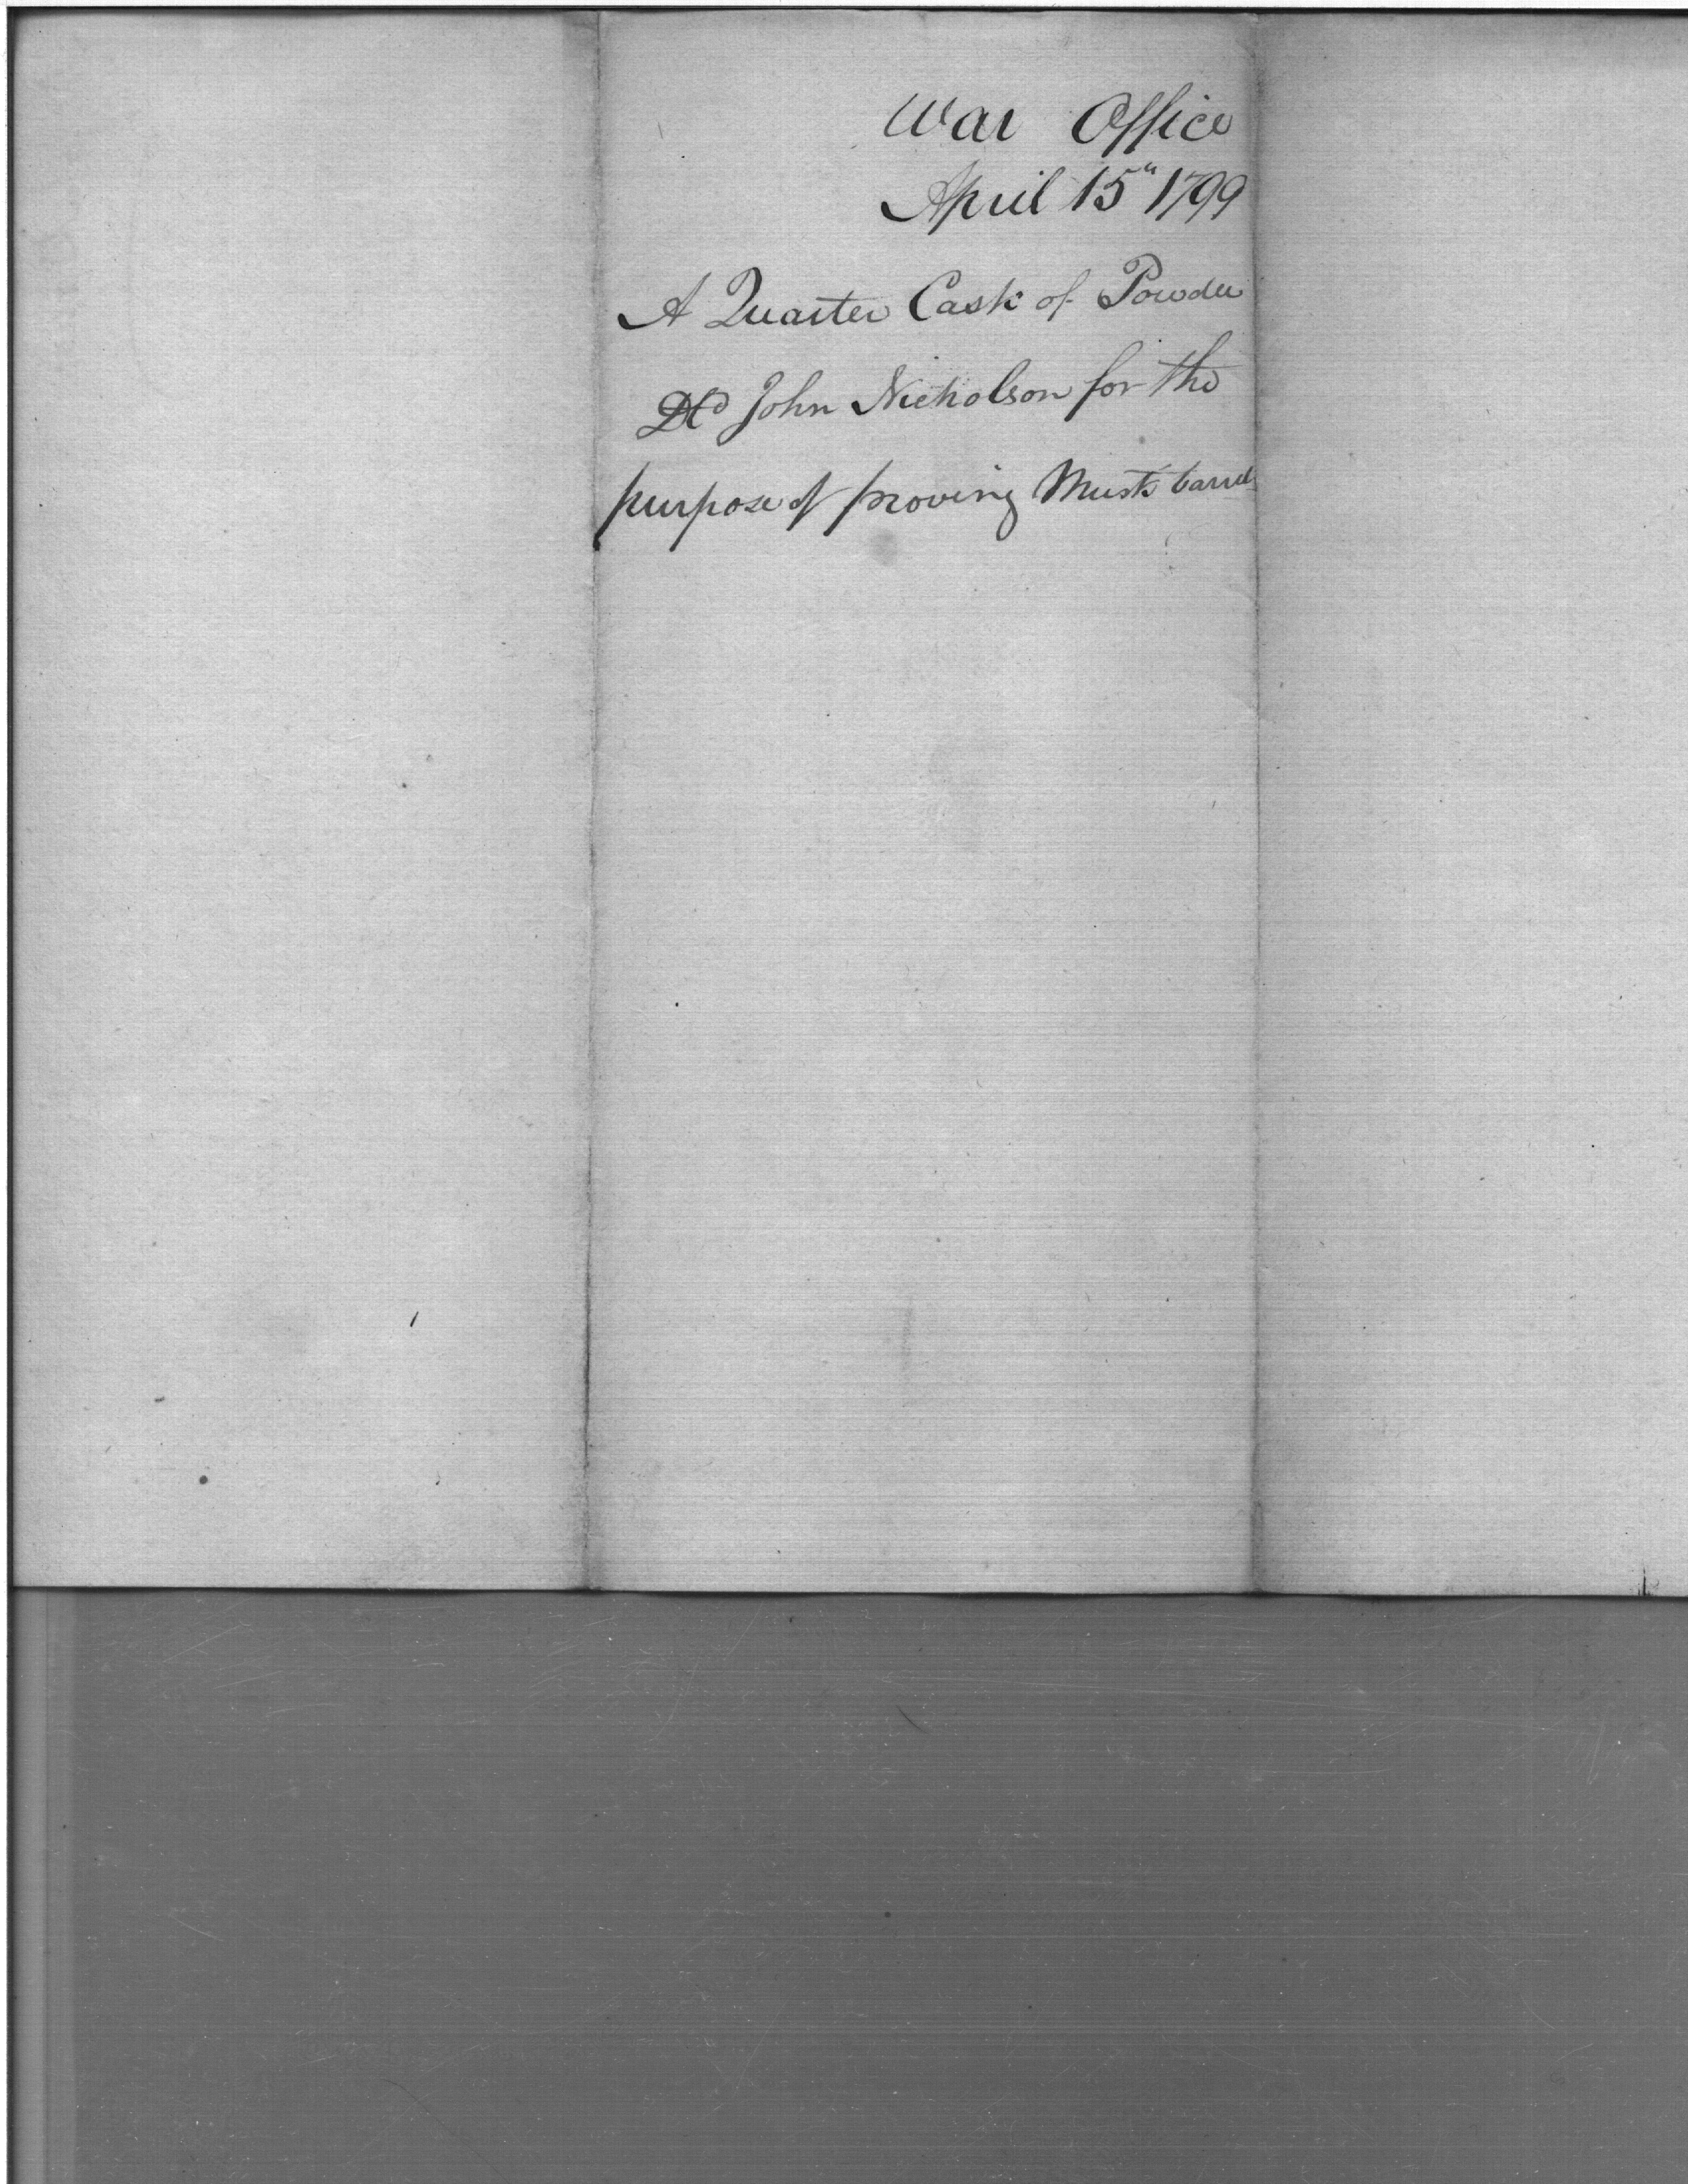 War Office
April 15" 1799
A Quarter Cask of Powder
Dd John Nicholson for the
purpose of proving Musk barrel